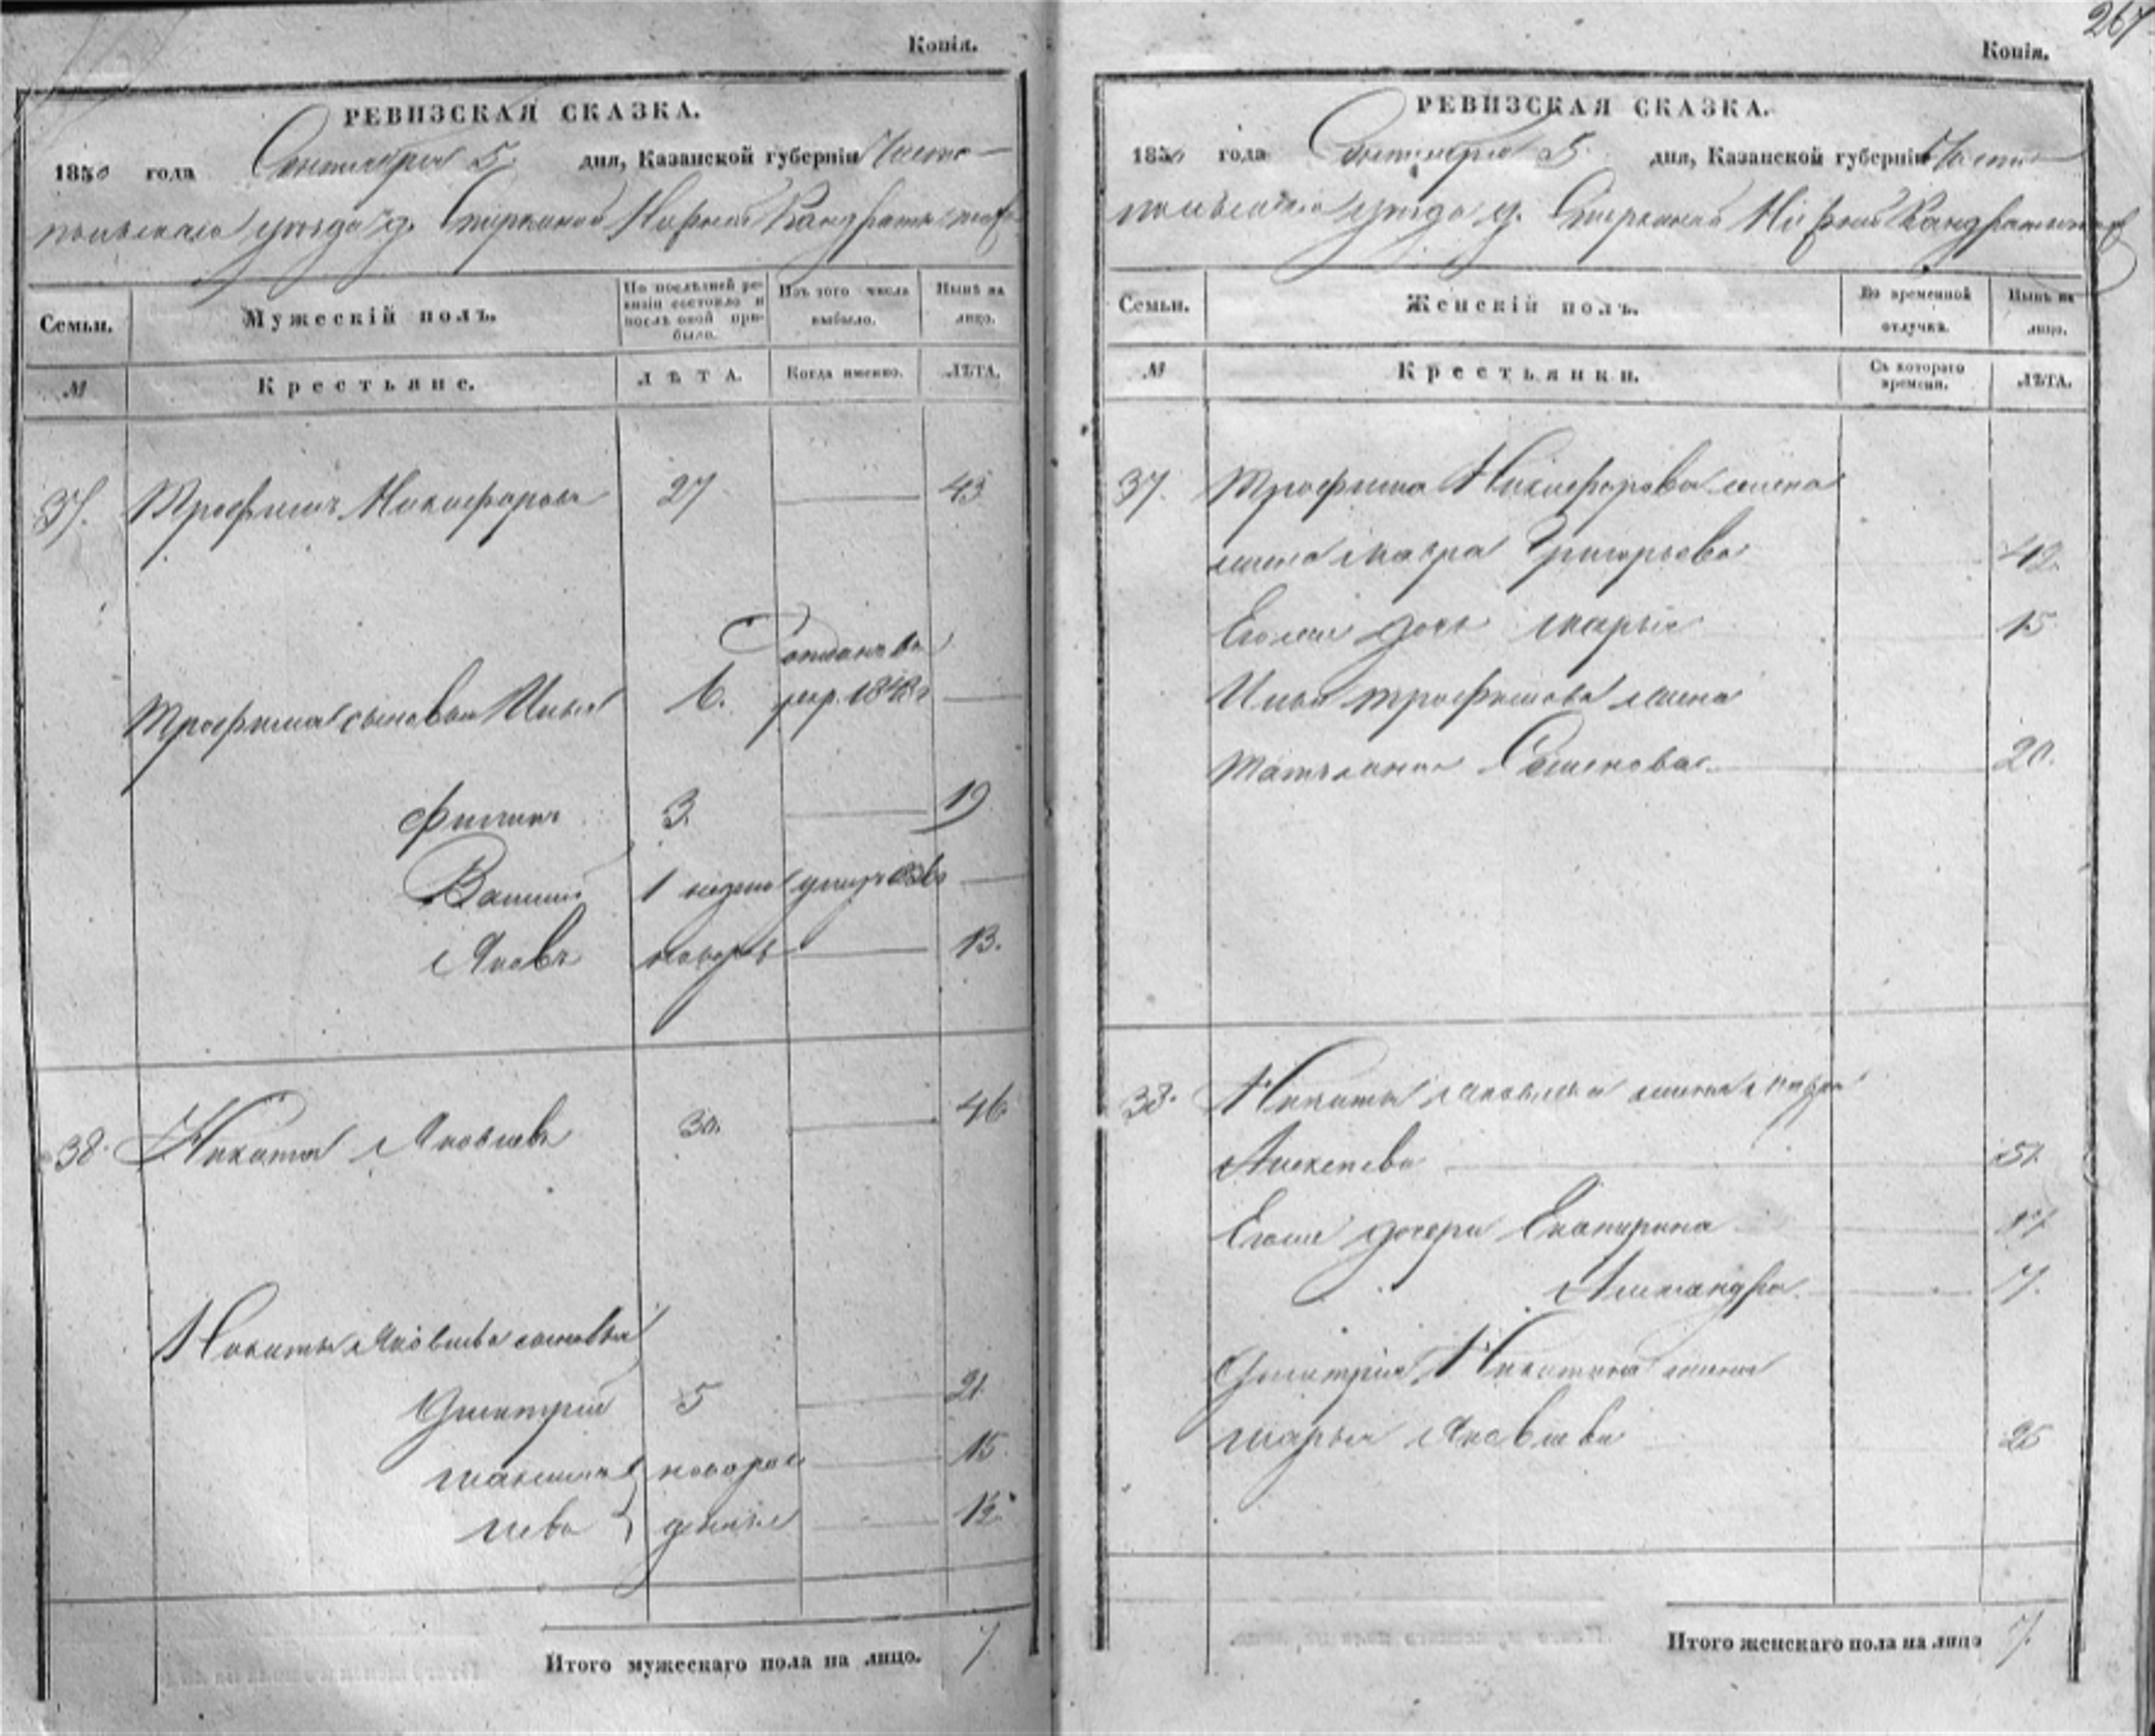 Копія.
РЕВИЗСКАЯ СКАЗКА.
1850 года Сентября 5. дня, Казанской губерніи Чисто-
польскаго уѣзда д.
Семьи.
Мужескій полъ.
По послѣдней ре-
визіи состояло и
послѣ оной при-
было.
Изъ того числа
выбыло.
Нынѣ на
лицо.
№
Крестьяне.
ЛѢТА.
Когда именно.
ЛѢТА.
37. Трофимъ Никифоровъ 27 43
Трофима сыновья Илья 6. Отданъ въ
рекр. 1848го
Филипъ 3. 19
Василий 1 недели умеръ
Яковъ новорож 13.
38. Никита Яковлевъ 30. 46
Никиты Яковлева сыновья
Дмитрий 5 21.
Максимъ новорож 15.
Лева денные 12
Итого мужескаго пола на лицо. 7
267
Копія.
РЕВИЗСКАЯ СКАЗКА.
1850 года Сентября 5. дня, Казанской губерніи Чисто-
польскаго уѣзда д.
Семьи.
Женскій полъ.
Во временной
отлучкѣ.
Нынѣ на
лицо.
№
Крестьянки.
Съ котораго
времени.
ЛѢТА.
37. Трофима Никифорова жена
Мавра Григорьева 42.
Его дочь Марья 15
Ильи Трофимова жена
Татьяна Семенова 20.
38. Никиты Яковлева жена Мавра
Алексеева 51.
Его дочери Екатерина 17.
7.
Дмитрия Никитина жена
Марья Яковлева 25
Итого женскаго пола на лицо 7.